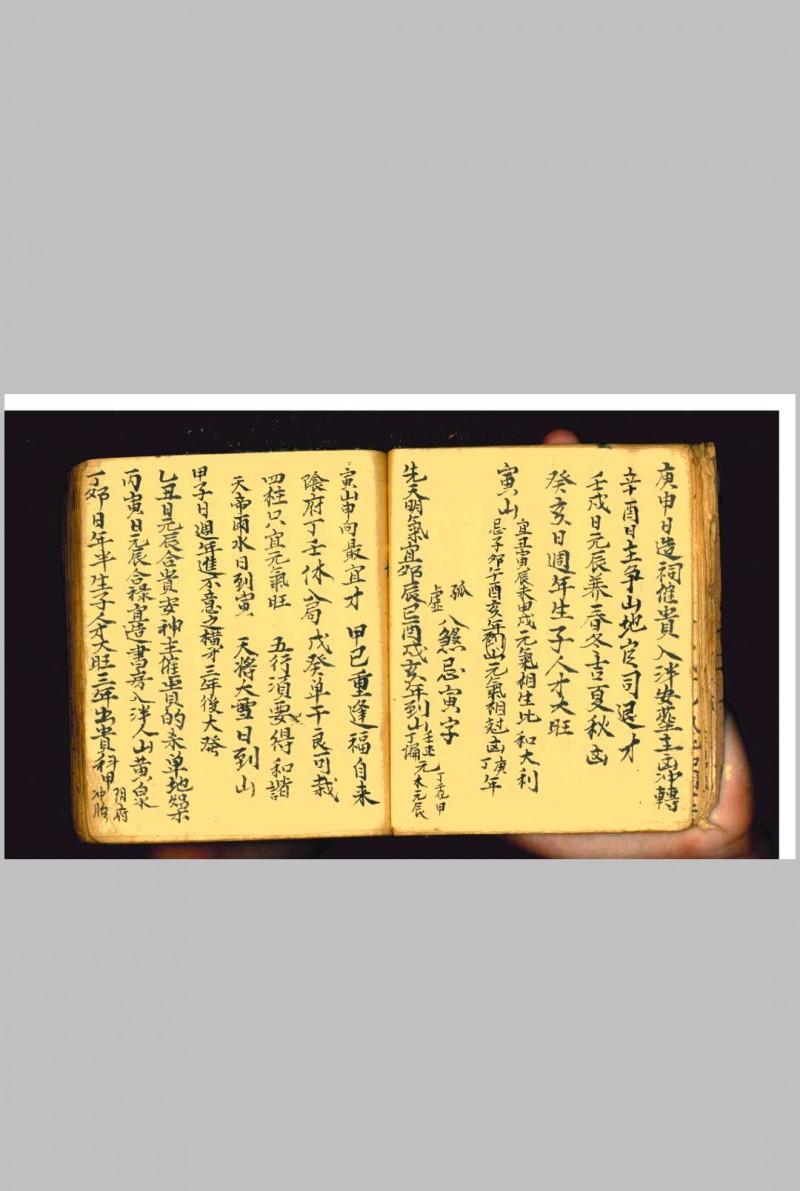 庚申日造祠催貴入泮安塟主凶沖轉
辛酉日主争山地官司退才
壬戌日元辰养春冬吉夏秋凶
癸亥日週年生子人才大旺
寅山
宜丑寅辰未申戌元氣相生比和大利
忌子卯午酉亥年到山元氣相尅凶
丁庚年
孤虚
八煞忌寅字
先天明氣宜卯辰巳酉戌亥年到山
元木元辰
寅山申向最宜才 甲巳重逢福自来
陰府丁壬休入局 戊癸单干良可栽
四柱只宜元氣旺 五行須要得和諧
天帝雨水日到寅 天將大雪日到山
甲子日週年進不意之横才三年後大發
乙丑日元辰合貴安神主催貴的来单地
丙寅日元辰合禄宜造書房入泮人山黄泉
丁卯日年半生子人才大旺三年出貴科甲
阴府
冲胎